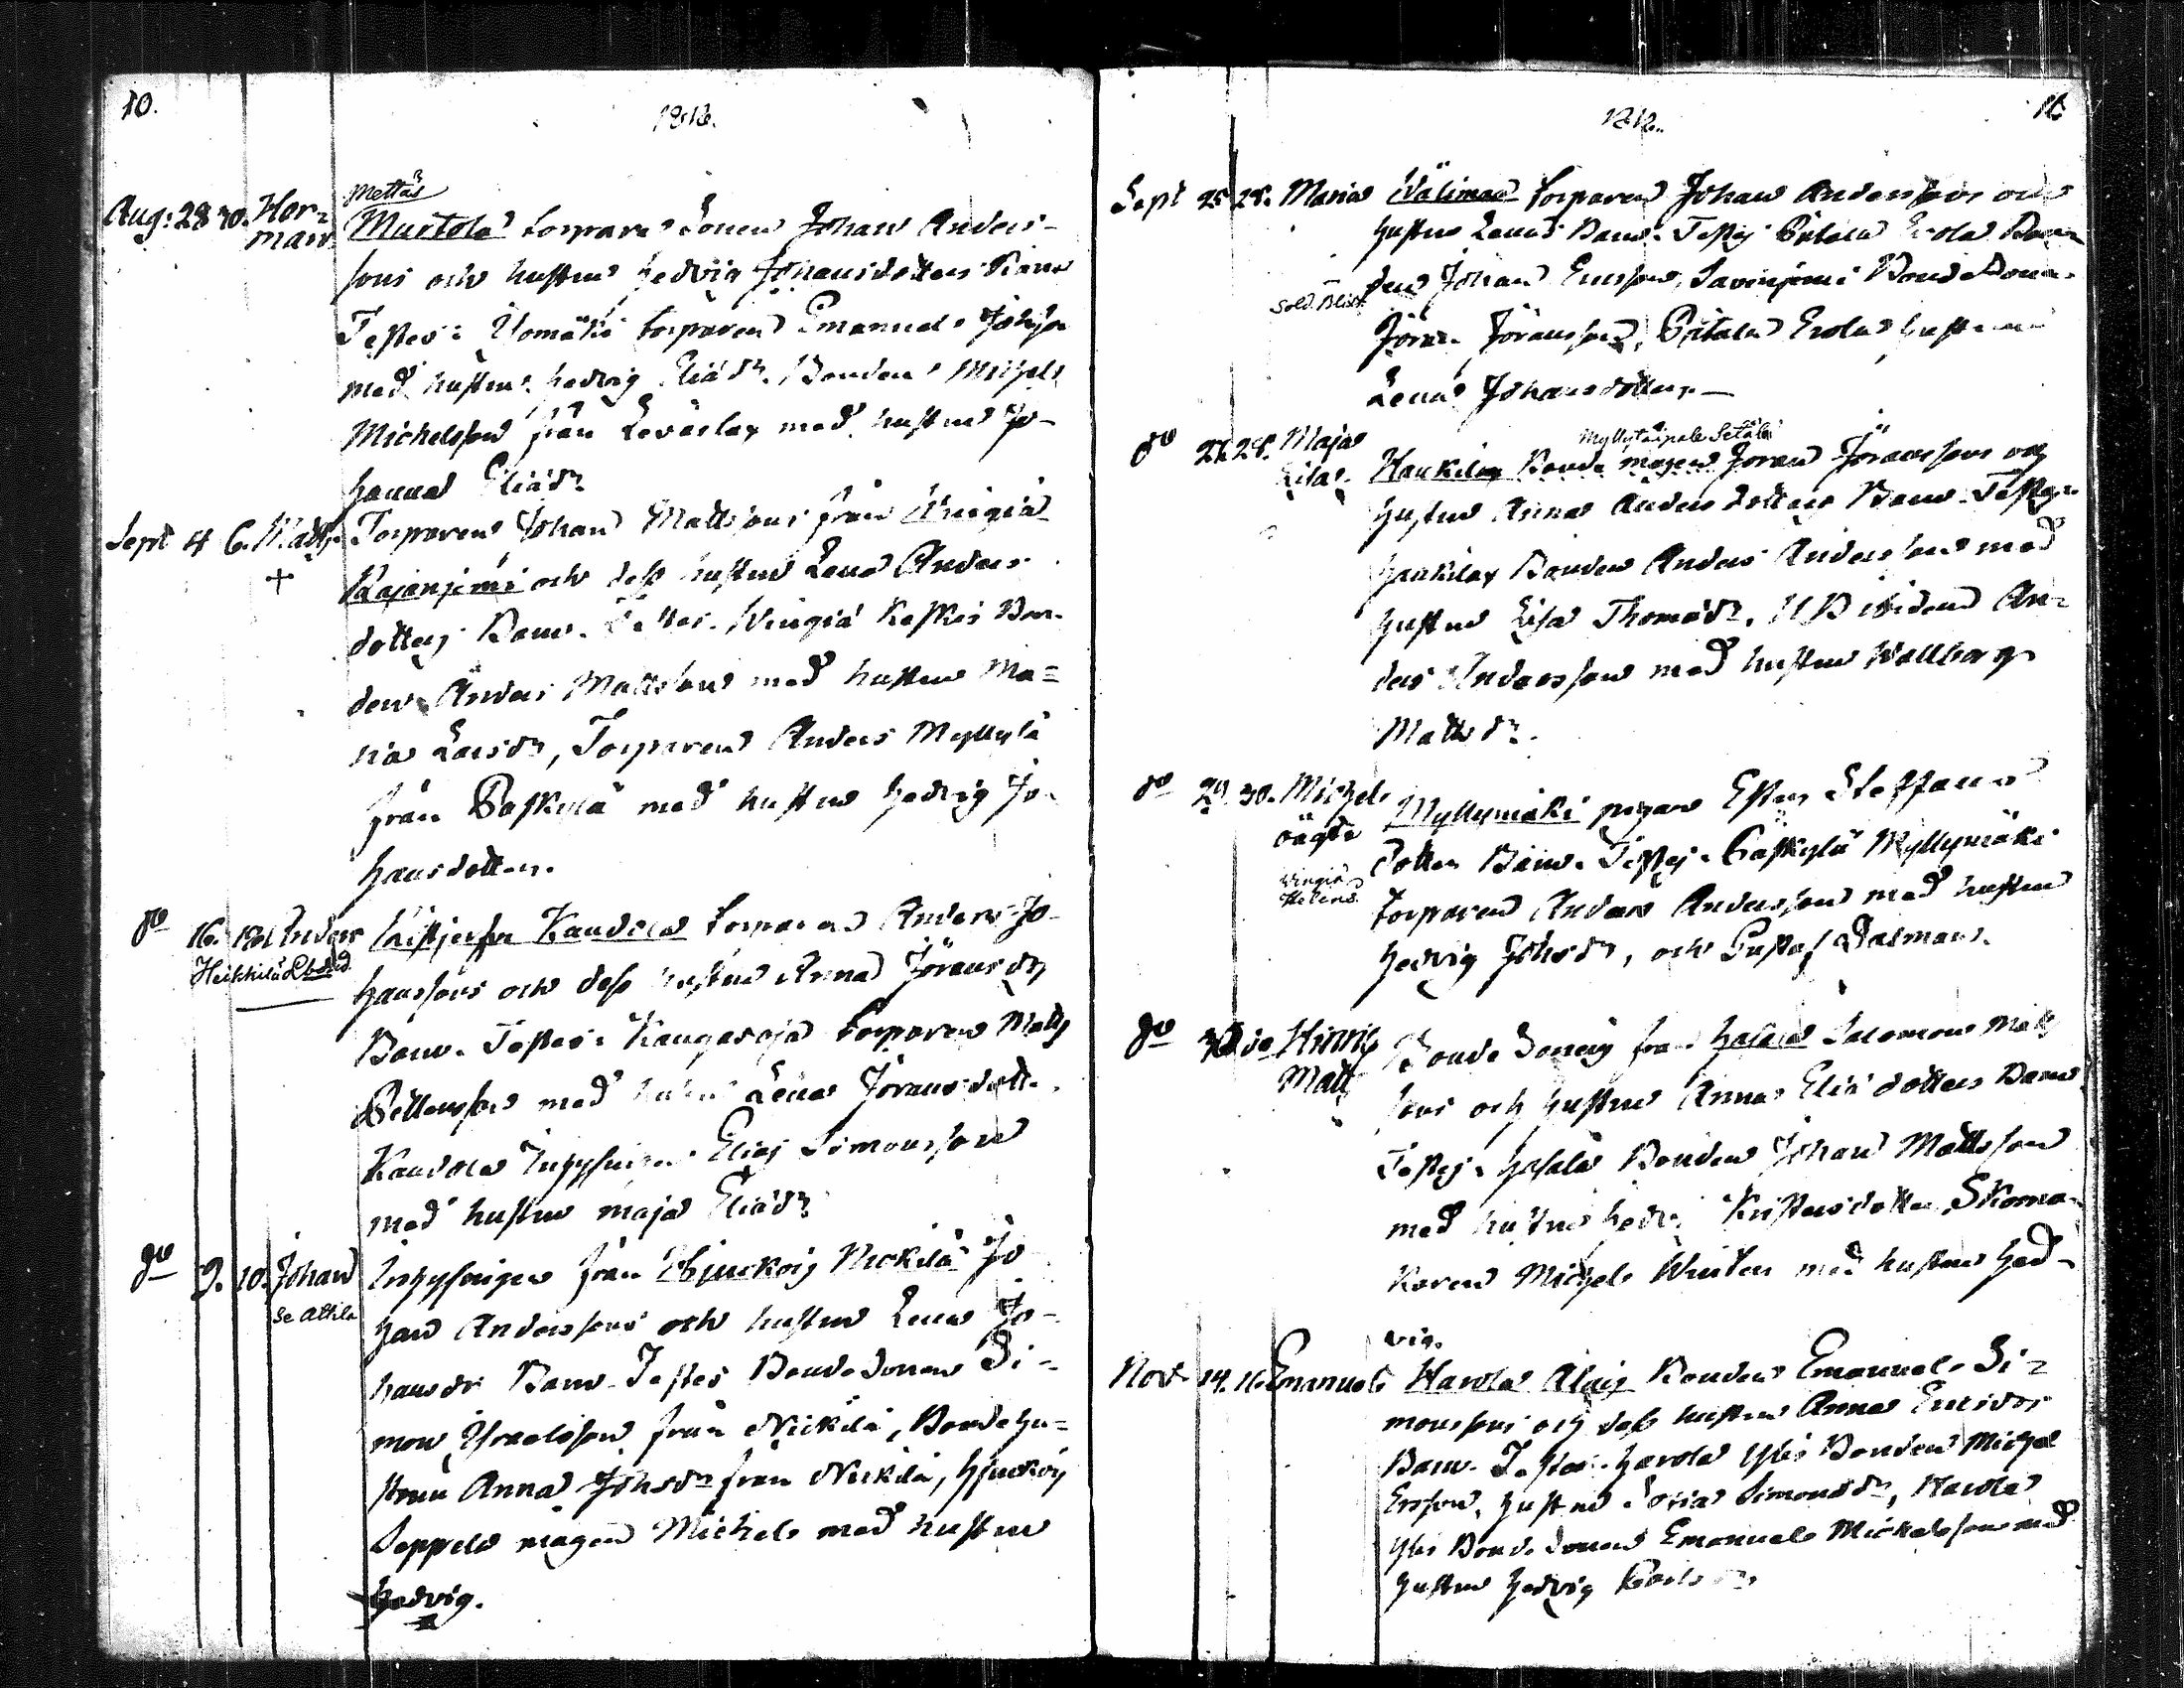 10.
1812.
Mettäs
Aug: 28 30. Her=
man
Murtola torpare Sonen Johan Anders-
sons och hustrus Hedvig Johansdotters Barn
Testes: Yomäki torparen Emanuel Johsson
med hustru Hedvig Eliädr. Bonden Michel
Michelsson från Leväslax med hustru Jo-
hanna Eliädr
Sept 4 6. Matts
+
Torparen Johan Mattssons från Wingiä
Rajaniemi och dess hustrus Lena Anders
dotters Barn. Testes. Wingiä Keskis Bon-
den Anders Mattsson med hustru Ma=
ria Larsdr, Torparen Anders Myllylä
från Påskylä med hustru Hedvig Jo-
hansdotter.
do 16. 18. Anders
Heikkilä
Kaudola torparen Anders Jo-
hanssons och dess hustrus Anna Jöransdrs
Barn. Testes: Kangasoja torparen Matts
Pettersson med hustru Lena Jöransdott.
Kaudola Inhysingen Elias Simonsson
med hustru Maja Eliädr
do 9. 10. Johan
se Attila
Inhysingen från Nickilä Jo
han Anderssons och hustrus Lena Jo-
hansdr Barn. Testes Bondesonen Si-
mon Israelsson från Nickilä, Bondehu=
strun Anna Johsdr från Nickilä,
Seppelä mågen Michel med hustru
Hedvig.
1812.
Sept 25 28. Maria
Wälimaa torparen Johan Anderssons och
hustrus Lenas Barn. Testes Pitala Erola Bon-
den Johan Ersson, Savonjemi Bonde Sonen
Sold. Blixt
Jöran Jöransson, Pitala Erolas hustru
Lena Johansdotter.
do 27. 28. Maja
Lisa.
Myllykaipale Setälä
Haukilax Bonde mågen Jöran Jöranssons och
hustrus Anna Andersdotters Barn. Testes
Haukilax Bonden Anders Andersson med
hustru Lisa Thomädr. An=
ders Andersson med hustru Wallborg
Mattsdr.
do 29. 30. Michel
oägta
Wingiä
Myllymäki pigan Ester Steffans
dotters Barn. Testes. Påskylä Myllymäki
torparen Anders Andersson med hustru
Hedvig Johsdr, och Gustaf Dalman.
do 30 do Hinric
Matts
Bonde Sonens från Hasala Salomon Matts
sons och hustrus Anna Eliädotters Barn
Testes. Hasala Bonden Johan Mattsson
med hustru Hedv. Kristersdotter, Skoma-
karen Michel Winter med hustru Hed-
vig.
Nov. 14. 16. Emanuel
Harola Alais Bonden Emanuel Si=
monssons och dess hustrus Anna Ericsdrs
Barn. Testes. Harola Ylis Bonden Michel
Ersson, hustrun Sofia Simonsdr, Harola
Ylis Bonde Sonen Emanuel Mickelsson med
hustru Hedvig